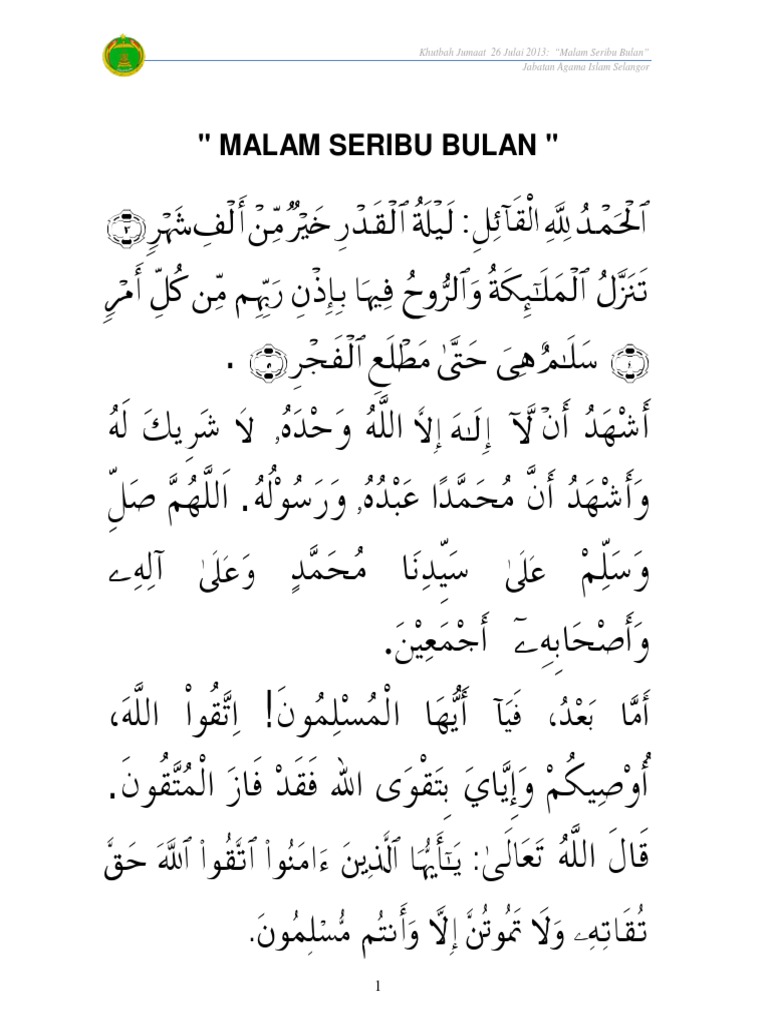 Khutbah Jumaat 26 Julai 2013: "Malam Seribu Bulan"
Jabatan Agama Islam Selangor
" MALAM SERIBU BULAN "
ٱلْحَمْدُ لِلَّهِ الْقَآئِلِ: لَيْلَةُ ٱلْقَدْرِ خَيْرٌ مِّنْ أَلْفِ شَهْرٍ ﴿٣﴾
تَنَزَّلُ ٱلْمَلَـٰٓئِكَةُ وَٱلرُّوحُ فِيهَا بِإِذْنِ رَبِّهِم مِّن كُلِّ أَمْرٍ
﴿٤﴾ سَلَـٰمٌ هِىَ حَتَّىٰ مَطْلَعِ ٱلْفَجْرِ ﴿٥﴾ .
أَشْهَدُ أَنْ لَّآ إِلَـٰهَ إِلاَّ اللَّهُ وَحْدَهُۥ لاَ شَرِيكَ لَهُ
وَأَشْهَدُ أَنَّ مُحَمَّدًا عَبْدُهُۥ وَرَسُوْلُهُ. اَللَّهُمَّ صَلِّ
وَسَلِّمْ عَلَىٰ سَيِّدِنَا مُحَمَّدٍ وَعَلَىٰ آلِهِۦ
وَأَصْحَابِهِۦٓ أَجْمَعِيْنَ.
أَمَّا بَعْدُ، فَيَآ أَيُّهَا الْمُسْلِمُونَ! اِتَّقُواْ اللَّهَ،
أُوْصِيكُمْ وَإِيَّايَ بِتَقْوَى الله فَقَدْ فَازَ الْمُتَّقُونَ.
قَالَ اللَّهُ تَعَالَىٰ: يَـٰٓأَيُّهَا ٱلَّذِينَ ءَامَنُوا۟ ٱتَّقُوا۟ ٱللَّهَ حَقَّ
تُقَاتِهِۦ وَلَا تَمُوتُنَّ إِلَّا وَأَنتُم مُّسْلِمُونَ.
1